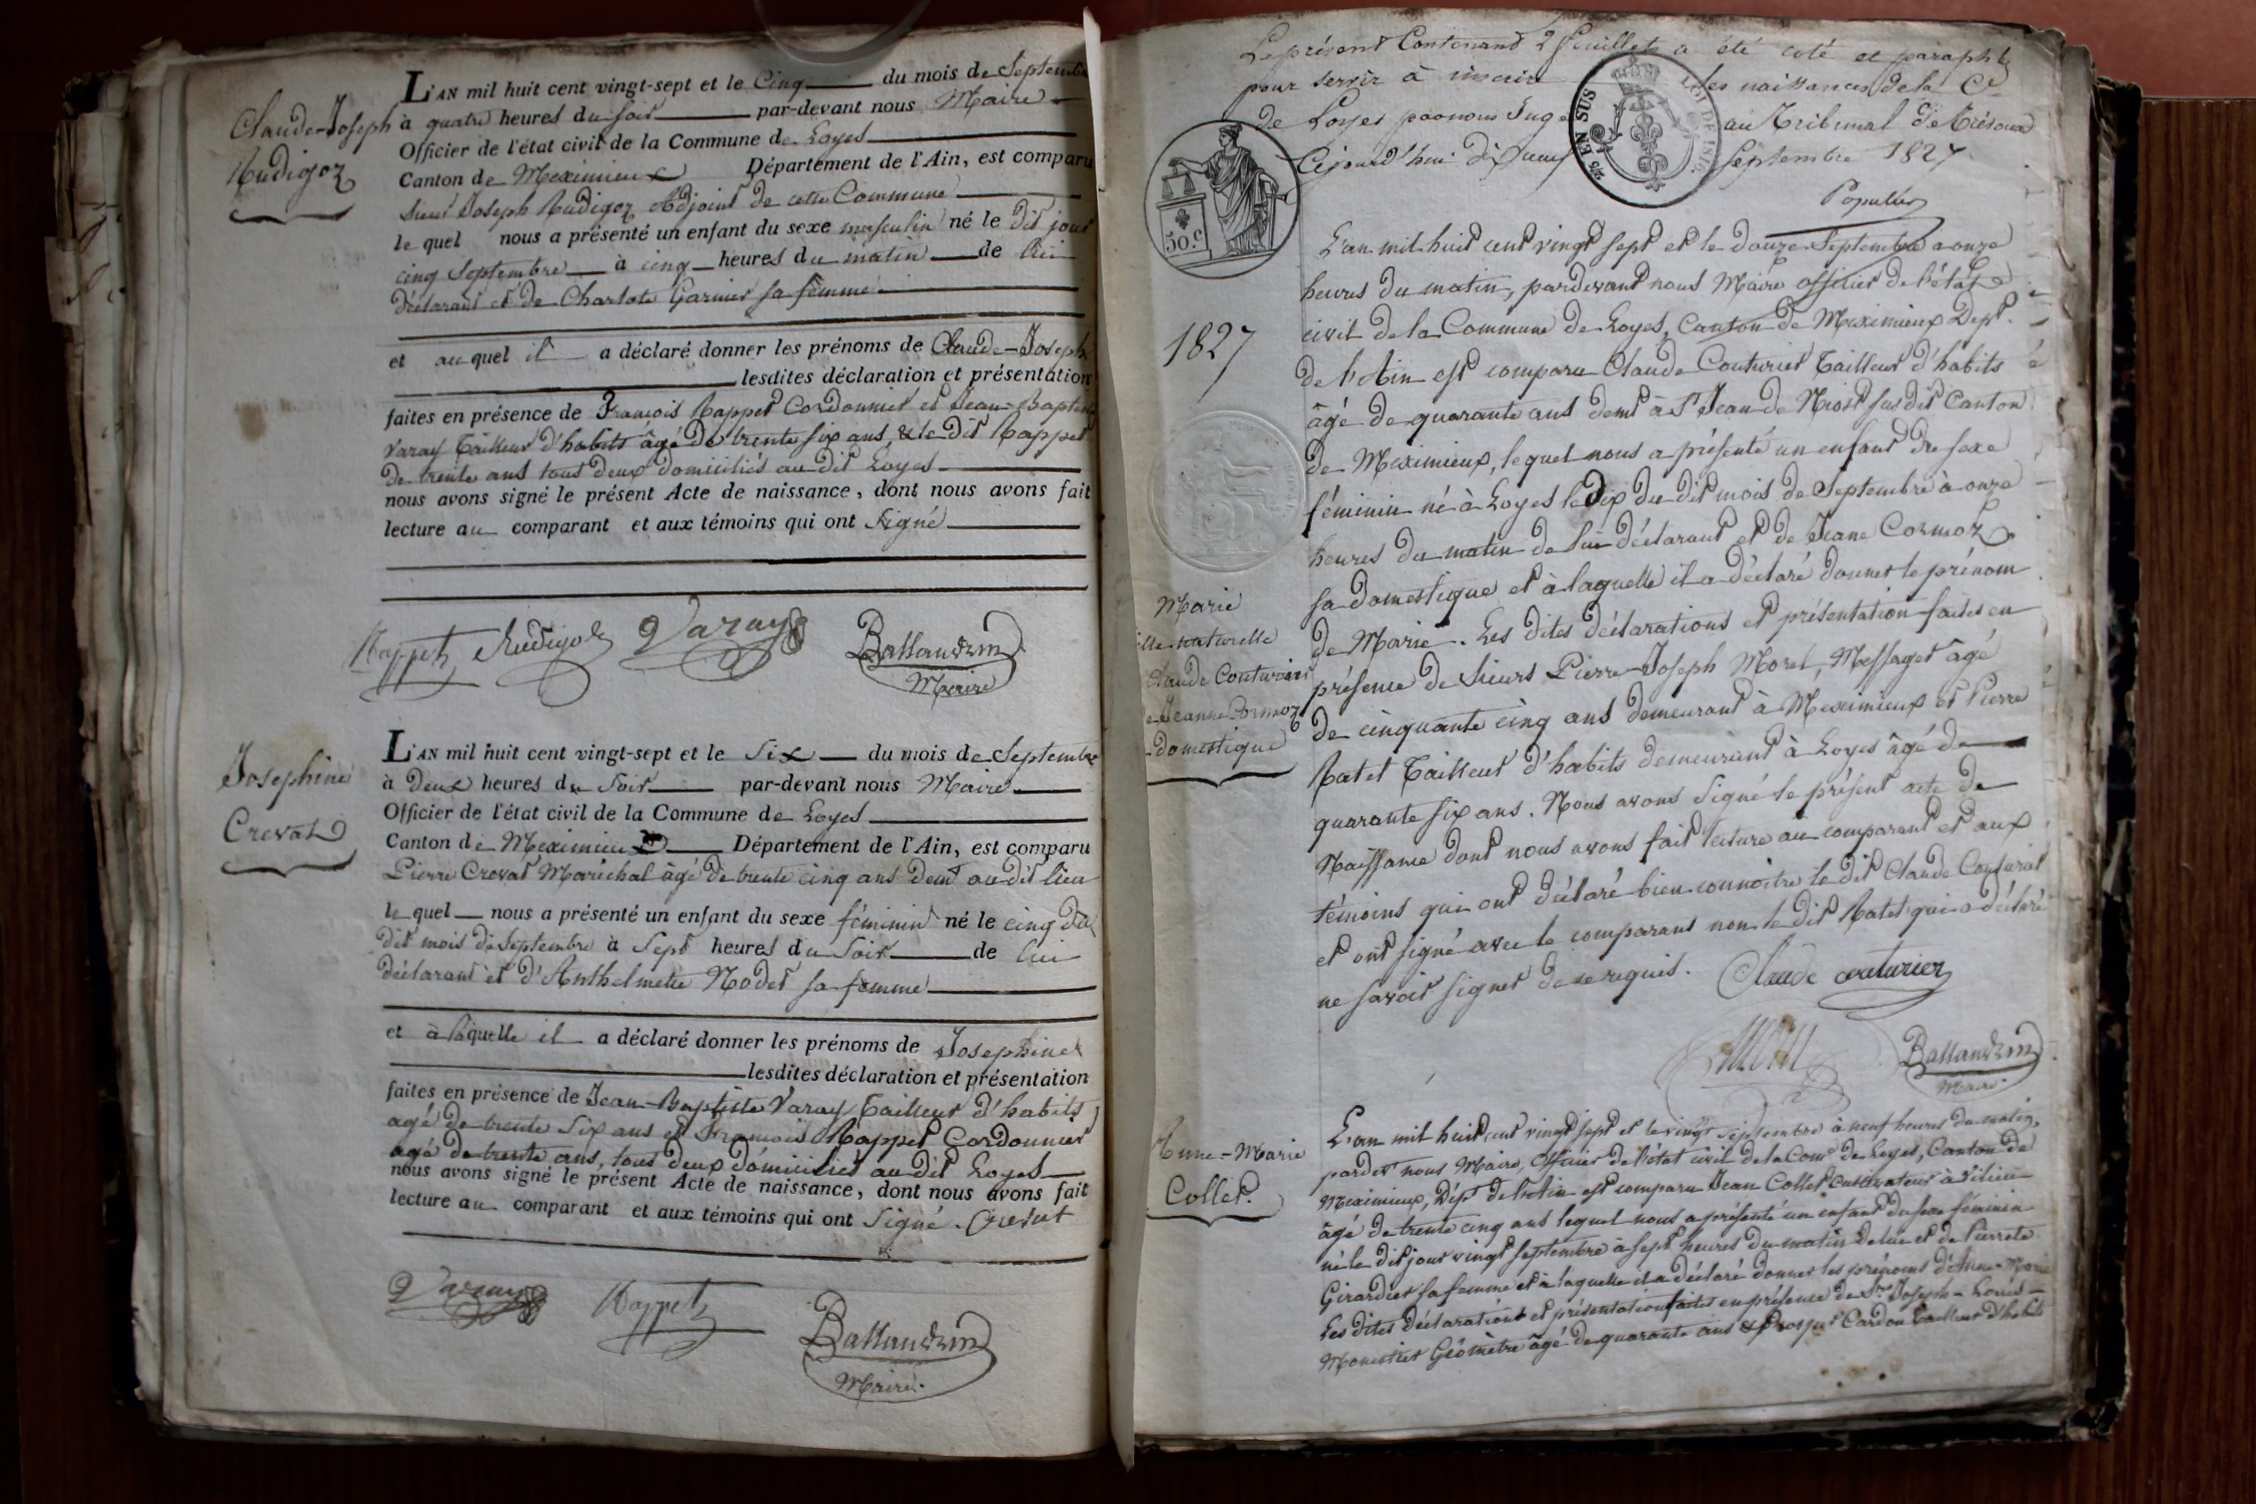 Claude-Joseph
Rudigoz
L'AN mil huit cent vingt-sept et le Cinq du mois de Septembre
à quatre heures du soir par-devant nous Maire
Officier de l'état civil de la Commune de Loyes
Canton de Meximieux Département de l'Ain, est comparu
sieur Joseph Rudigoz Adjoint de cette Commune
le quel nous a présenté un enfant du sexe masculin né le dit jour
cinq Septembre à cinq heures du matin de lui
déclarant et de Charlote Garnier sa femme
et au quel il a déclaré donner les prénoms de Claude-Joseph
lesdites déclaration et présentation
faites en présence de François Rappet Cordonnier et Jean-Baptiste
Varay Tailleur d'habits âgé de trente six ans, & le dit Rappet
de trente ans tous deux domiciliés au dit Loyes
nous avons signé le présent Acte de naissance, dont nous avons fait
lecture au comparant et aux témoins qui ont signé
Rappet Rudigoz Varay Ballandrin
Maire
Josephine
Crevat
L'AN mil huit cent vingt-sept et le six du mois de Septembre
à deux heures du soir par-devant nous Maire
Officier de l'état civil de la Commune de Loyes
Canton de Meximieux Département de l'Ain, est comparu
Pierre Crevat Maréchal âgé de trente cinq ans demt au dit lieu
le quel nous a présenté un enfant du sexe féminin né le cinq du
dit mois de Septembre à sept heures du soir de lui
déclarant et d'Anthelmette Nodet sa femme
et à laquelle il a déclaré donner les prénoms de Josephine
lesdites déclaration et présentation
faites en présence de Jean-Baptiste Varay Tailleur d'habits
agé de trente six ans et François Rappet Cordonnier
agé de trente ans, tous deux domiciliés au dit Loyes
nous avons signé le présent Acte de naissance, dont nous avons fait
lecture au comparant et aux témoins qui ont signé. Crevat
Varay Rappet Ballandrin
Maire.
Le présent Contenant 2 feuillets a été coté et paraphé
pour servir à inscrire les naissances de la Cne
de Loyes par nous Juge au Tribunal de Trévoux
Cejourd'hui dix neuf Septembre 1827
25 EN SUS
LOI DE 1816.
50.C
Populus
1827
L'an mil huit cent vingt sept et le douze Septembre a onze
heures du matin, pardevant nous Maire officier de l'état
civil de la Commune de Loyes, Canton de Meximieux Dept.
de l'Ain est comparu Claude Couturier Tailleur d'habits
âgé de quarante ans demt à St Jean de Niost susdit Canton
de Meximieux, lequel nous a présenté un enfant du sexe
féminin né à Loyes le dix du dit mois de Septembre à onze
heures du matin de lui déclarant et de Jeane Cormoz
sa domestique et à laquelle il a déclaré donner le prénom
de Marie. Les dites déclarations et présentation faites en
présence de Sieurs Pierre-Joseph Morel, Messager âgé
de cinquante cinq ans demeurant à Meximieux et Pierre
Ratet Tailleur d'habits demeurant à Loyes âgé de
quarante six ans. Nous avons signé le présent acte de
Naissance dont nous avons fait lecture au comparant et aux
témoins qui ont déclaré bien connoitre le dit Claude Couturier
et ont signé avec le comparans non le dit Ratet qui a déclaré
ne savoir signer de ce requis. Claude couturier
Marie
naturelle
Claude Couturier
Jeanne Cormoz
domestique
Ballandrin
Maire.
Anne-Marie
Collet.
L'an mil huit cent vingt sept et le vingt Septembre à neuf heures du matin,
pardevt nous Maire, officier de l'état civil de la Come de Loyes, Canton de
Meximieux, Dépt de l'Ain est comparu Jean Collet cultivateur à
âgé de trente cinq ans lequel nous a présenté un enfant du sexe féminin
né le dit jour vingt septembre à sept heures du matin de lui et de Pierrete
Girardier sa femme et à laquelle il a déclaré donner les prénoms d'Anne-Marie
Les dites déclarations et présentation faites en présence de Sr Joseph-Louis-
Monestier Géomètre âgé de quarante ans & Cardon Tailleur d'habits